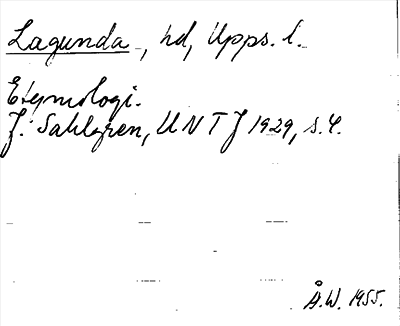 Lagunda, hd, Upps. l.
Etymologi.
J. Sahlgren, UNTJ 1929, s. 4.
Å.W. 1955.